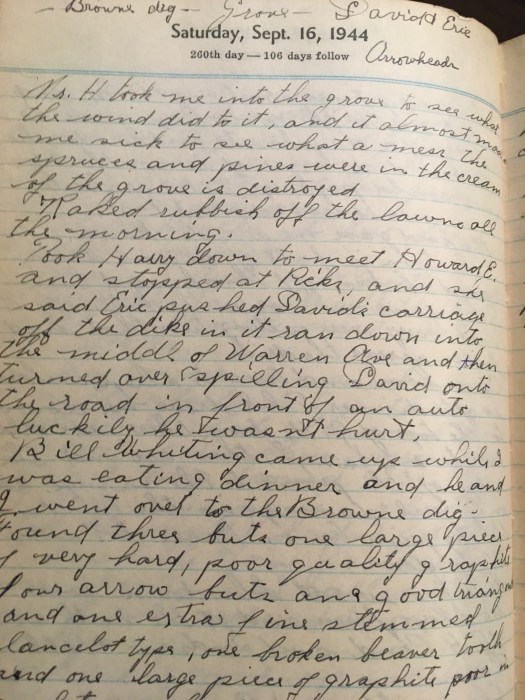 - Browne dig - Grove - David & Eric
Saturday, Sept. 16, 1944
260th day — 106 days follow Arrowheads
Mrs. H took me into the grove to see what
the wind did to it, and it almost made
me sick to see what a mess the
spruces and pines were in the cream
of the grove is distroyed
Raked rubbish off the lawns all
the morning.
Took Harry down to meet Howard E.
and stopped at and she
said Eric pushed David's carriage
off the dike in it ran down into
the middle of Warren Ave and then
turned over spilling David onto
the road in front of an auto
luckily he wasn't hurt.
Bill Whiting came up while I
was eating dinner and he and
I went over to the Browne dig -
Found three buts one large piece
of very hard, poor quality graphite
four arrow buts and good triang
and one extra fine stemmed
lancelot type, one broken beaver tooth
and one large piece of graphite poor in